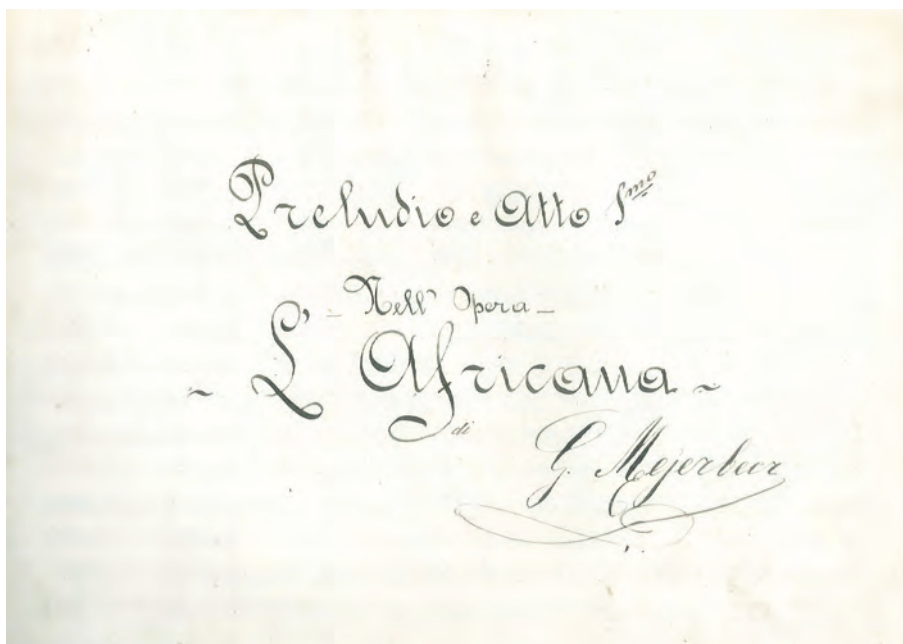 Preludio e Atto 1mo
- Nell' Opera -
~ L'Africana ~
di
G. Mejerbeer